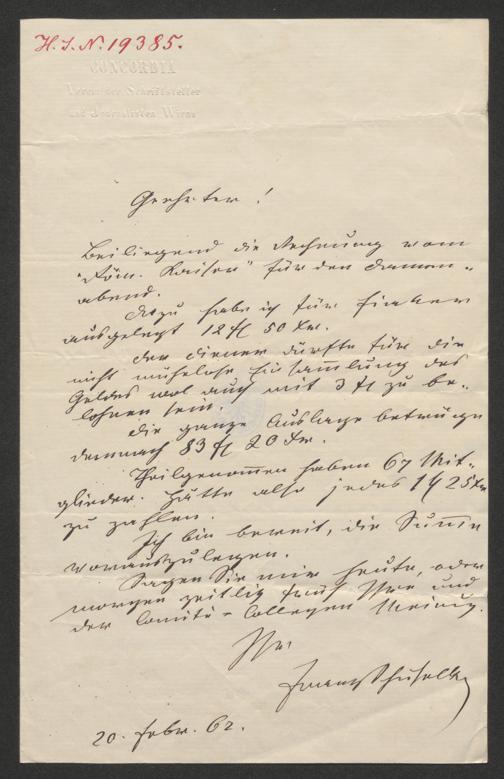 H. I. N. 19385.
CONCORDIA
Verein der Schriftsteller
und Journalisten Wiens
Geehrter!
Beiliegend die Rechnung vom
"Röm. Kaiser" für den Damen-
abend.
Dazu habe ich für Fiaker
ausgelegt 12 fl 50 Kr.
Der Diener dürfte für die
nicht mühelose Einsammlung des
Geldes wol auch mit 3 fl zu be-
lohnen sein.
Die ganze Auslage betrüge
demnach 83 fl 20 Kr.
Theilgenommen haben 67 Mit-
glieder. Hätte also jedes 1 fl 25 Kr
zu zahlen.
Ich bin bereit, die Summe
vorauszulegen.
Sagen Sie mir heute, oder
morgen zeitlig früh Ihre und
der Comité-Collegen Meinung.
Ihr
Franz Schuselka
20. Febr. 62.